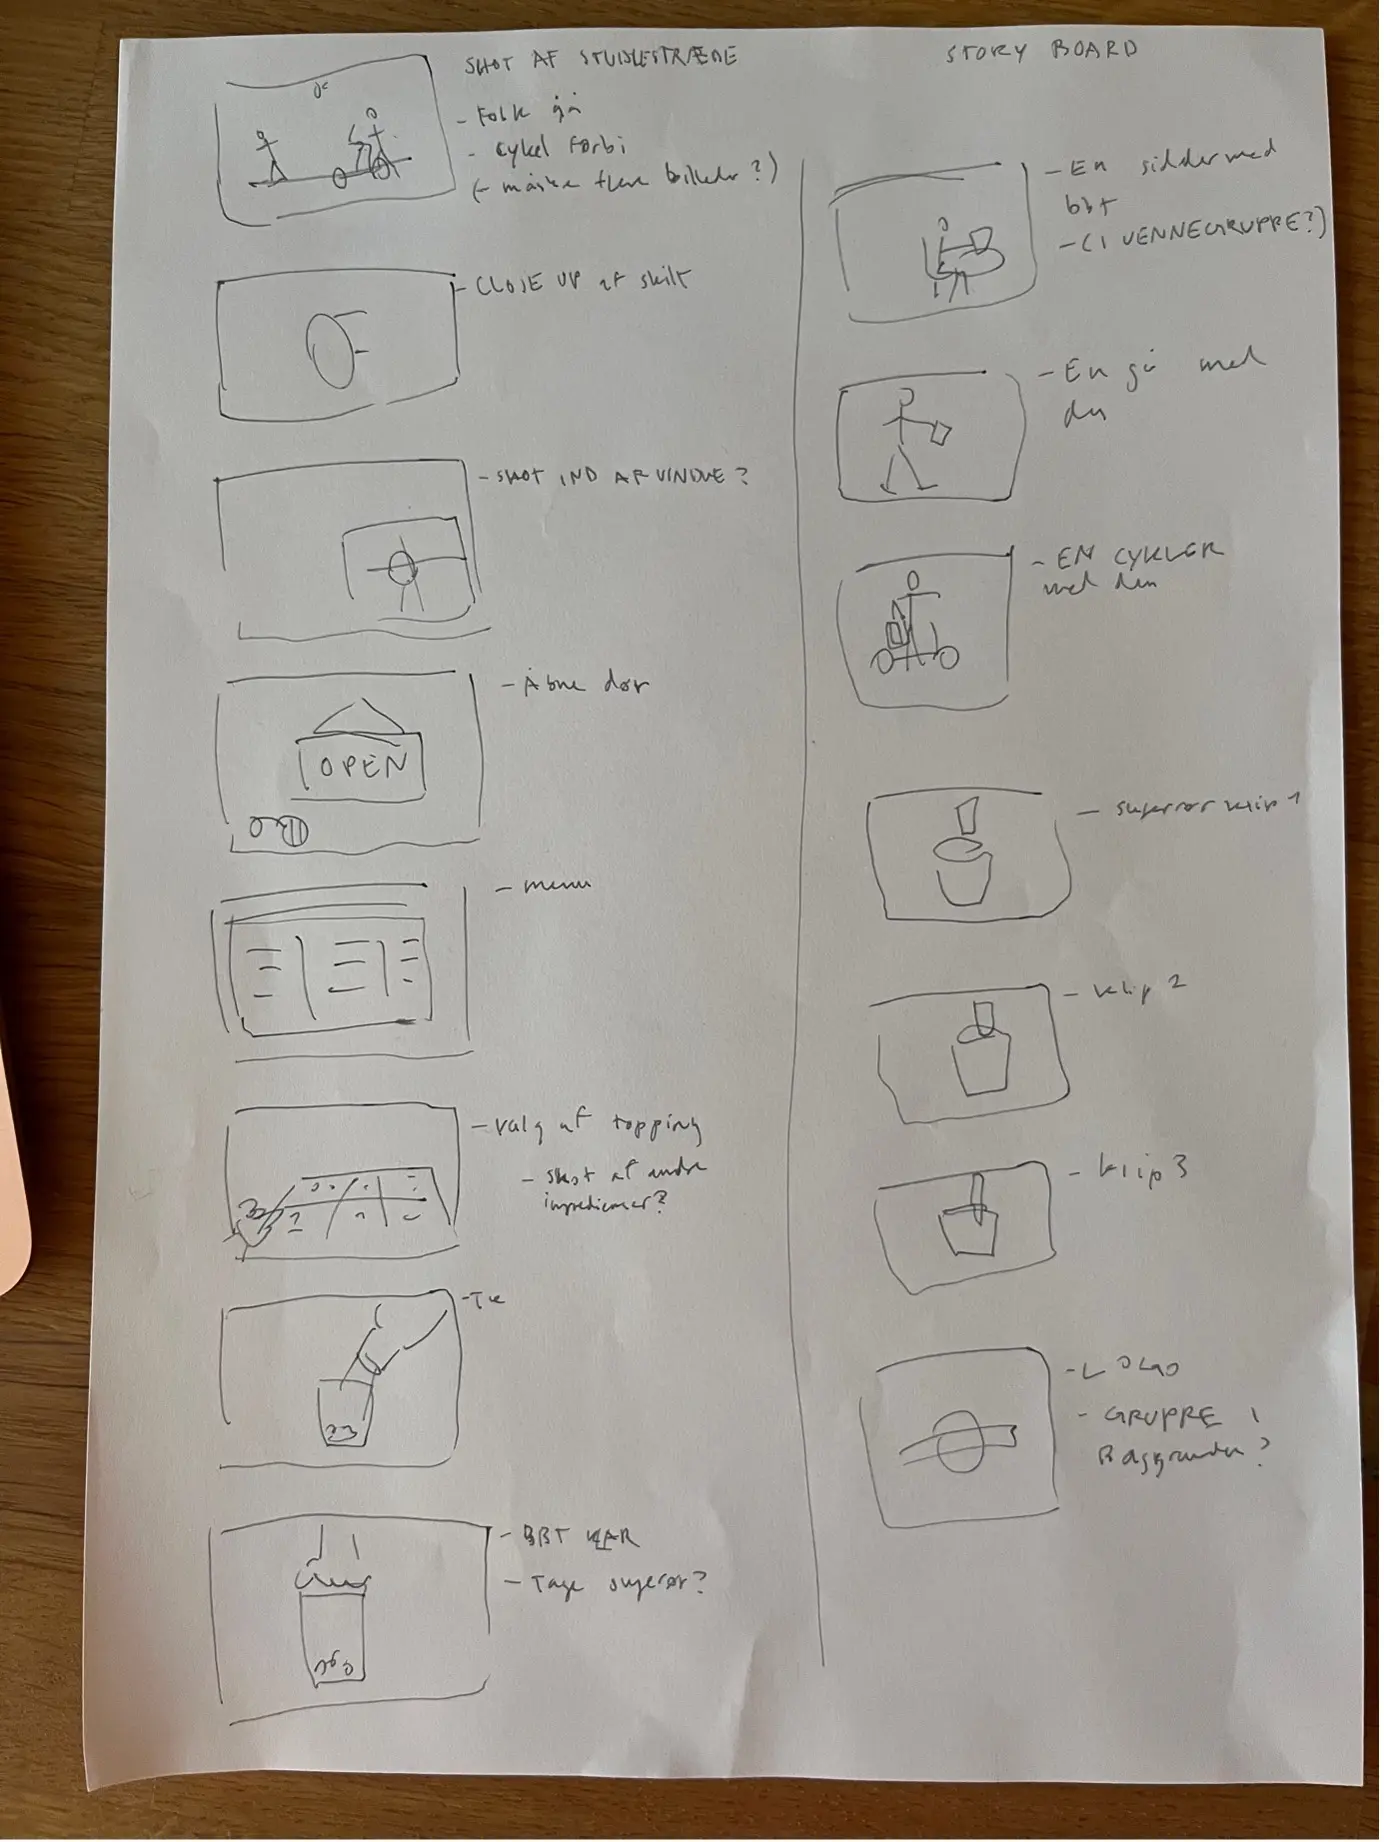 STORY BOARD
SHOT AF STUDIESTRÆDE
- Folk gå
- cykel forbi
(- måske flere billeder?)
- CLOSE UP af skilt
- SHOT IND AF VINDUE?
- Åbne dør
OPEN
- menu
- valg af topping
- Shot af andre
ingredienser?
- Te
- BBT KLAR
- Tage sugerør?
- En sidder med
bbt
- (I VENNEGRUPPE?)
- En gå med
den
- EN CYKLER
med den
- sugerør klip 1
- klip 2
- klip 3
- LOGO
- GRUPPE I
Baggrunden?